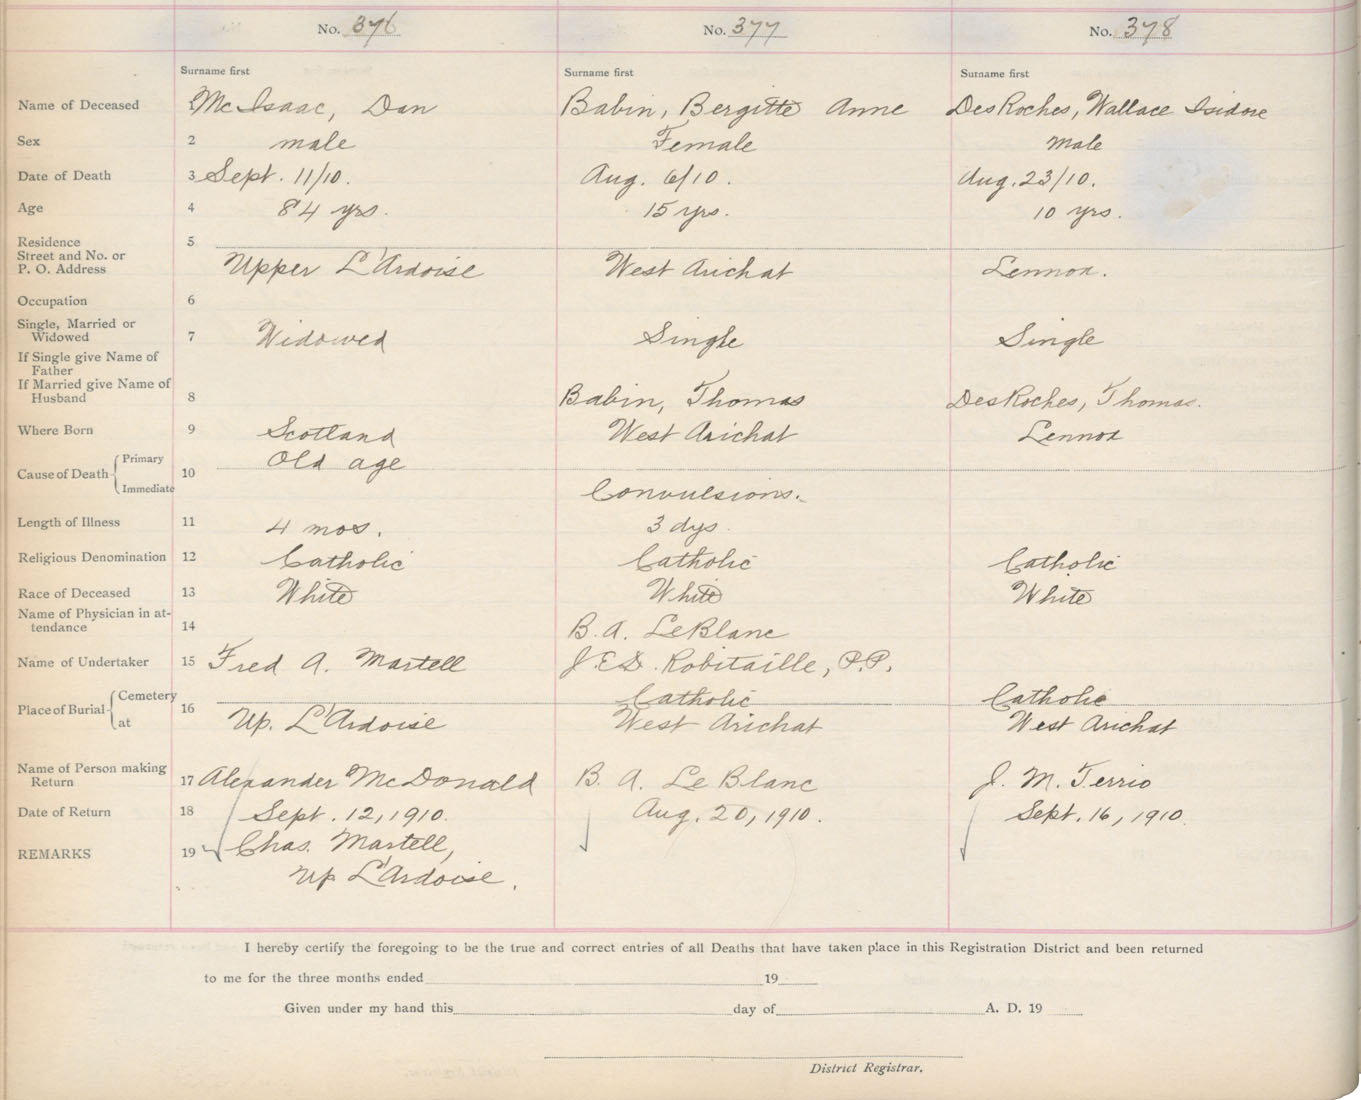 No. 376 No. 377 No. 378
Surname first Surname first Surname first
Name of Deceased McIsaac, Dan Babin, Bergitte Anne DesRoches, Wallace Isidore
Sex 2 male Female Male
Date of Death 3 Sept. 11/10. Aug. 6/10. Aug. 23/10.
Age 4 84 yrs. 15 yrs. 10 yrs.
Residence 5
Street and No. or
P. O. Address Upper L'Ardoise West Arichat Lennox.
Occupation 6
Single, Married or
Widowed 7 Widowed Single Single
If Single give Name of
Father
If Married give Name of
Husband 8 Babin, Thomas DesRoches, Thomas.
Where Born 9 Scotland West Arichat Lennox
Cause of Death Primary 10 Old age
Immediate Convulsions.
Length of Illness 11 4 mos. 3 dys.
Religious Denomination 12 Catholic Catholic Catholic
Race of Deceased 13 White White White
Name of Physician in at-
tendance 14 B. A. LeBlanc
Name of Undertaker 15 Fred A. Martell J.E.D. Robitaille, P.P.
Place of Burial Cemetery 16 Catholic Catholic
at Up. L'Ardoise West Arichat West Arichat
Name of Person making
Return 17 Alexander McDonald B. A. LeBlanc J. M. Terrio
Date of Return 18 Sept. 12, 1910. Aug. 20, 1910. Sept. 16, 1910.
REMARKS 19 Chas. Martell,
Up L'Ardoise.
I hereby certify the foregoing to be the true and correct entries of all Deaths that have taken place in this Registration District and been returned
to me for the three months ended 19
Given under my hand this day of A. D. 19
District Registrar.